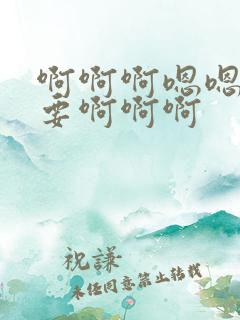 啊啊啊嗯嗯
要啊啊啊
祝謙
未经同意禁止转载